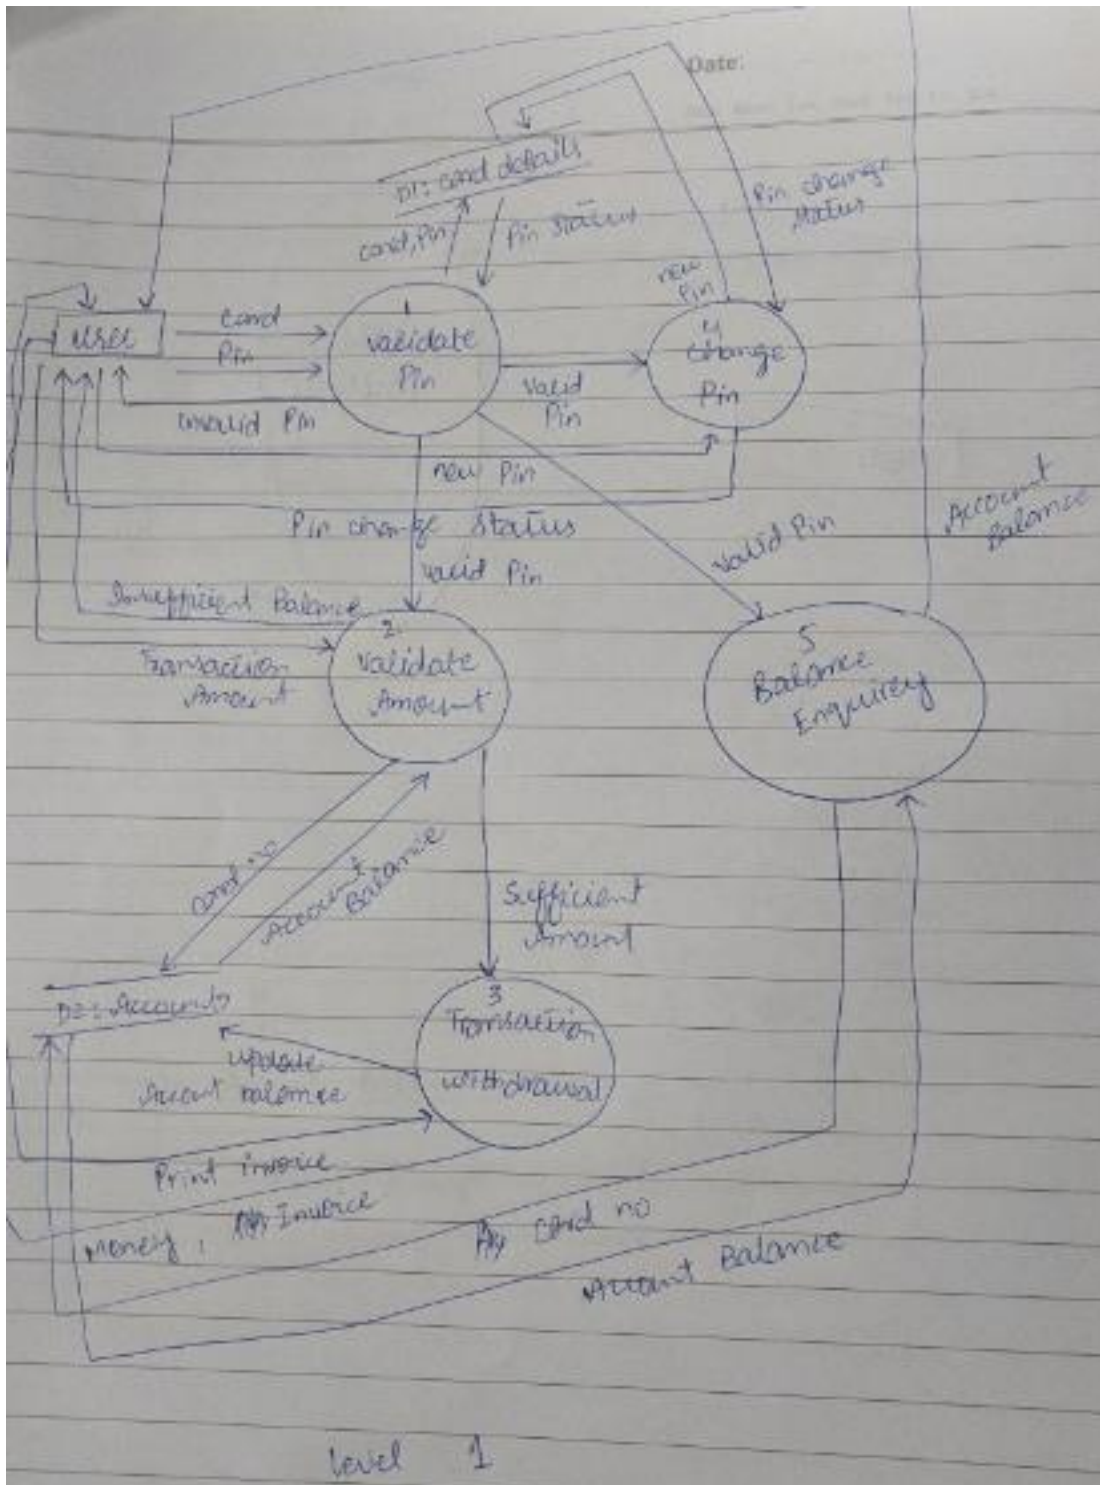 Date:
D1: card details
card, Pin
Pin status
Pin change
status
new
Pin
user
card
Pin
1
validate
Pin
4
change
Pin
valid
Pin
invalid Pin
new Pin
Pin change status
valid Pin
valid Pin
Account
Balance
Insufficient Balance
Transaction
Amount
2.
validate
Amount
5
Balance
Enquirey
card no
Account
Balance
Sufficient
Amount
D2: Accounts
3
Transaction
withdrawal
update
Account balance
Print invoice
Money, Invoice
card no
Account Balance
Level 1